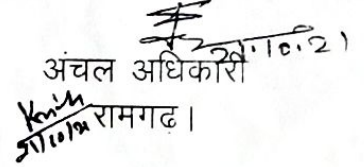 21.10.21
अंचल अधिकारी
21/10/21 रामगढ़।